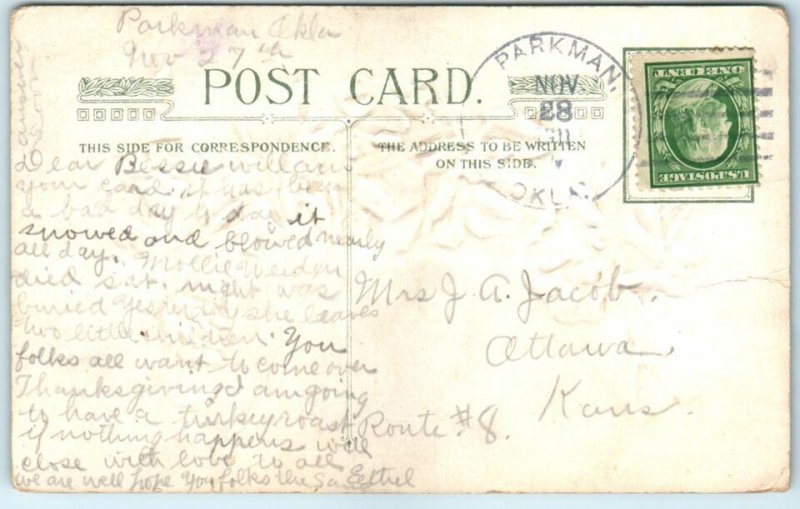 Parkman Okla
Nov 27th
answer soon
POST CARD.
THIS SIDE FOR CORRESPONDENCE.
THE ADDRESS TO BE WRITTEN
ON THIS SIDE.
PARKMAN,
NOV
28
OKLA.
ONE CENT
U.S. POSTAGE
Dear Bessie will ans
your card. it has been
a bad day to day it
snowed and blowed nearly
all day. Mollie
died sat. night was
buried Yesterday she leaves
two little children. You
folks all want to come over
Thanksgiving I am going
to have a turkey roast
if nothing happens will
close with love to all
we are well hope you folks the same Ethel
Mrs J. A. Jacob.
Ottawa
Kans.
Route #8.